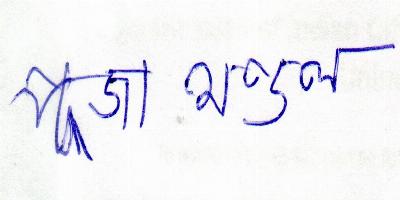 পূজা মণ্ডল